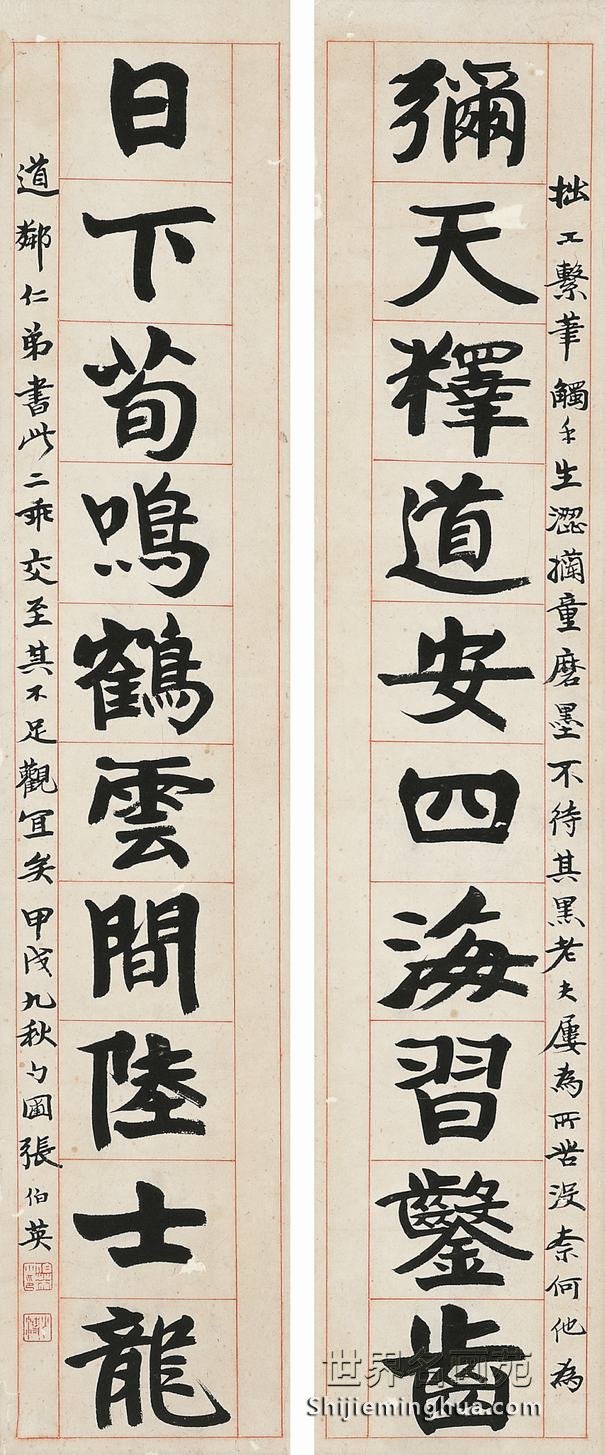 彌天釋道安四海習鑿齒
拙工繫筆觸手生澀擱童磨墨不待其黑老夫屢為所苦沒柰何他為
日下荀鳴鶴雲間陸士龍
道鄰仁弟書此二乖交至其不足觀宜矣甲戌九秋勺圃張伯英
世界名画苑
Shijieminghua.com